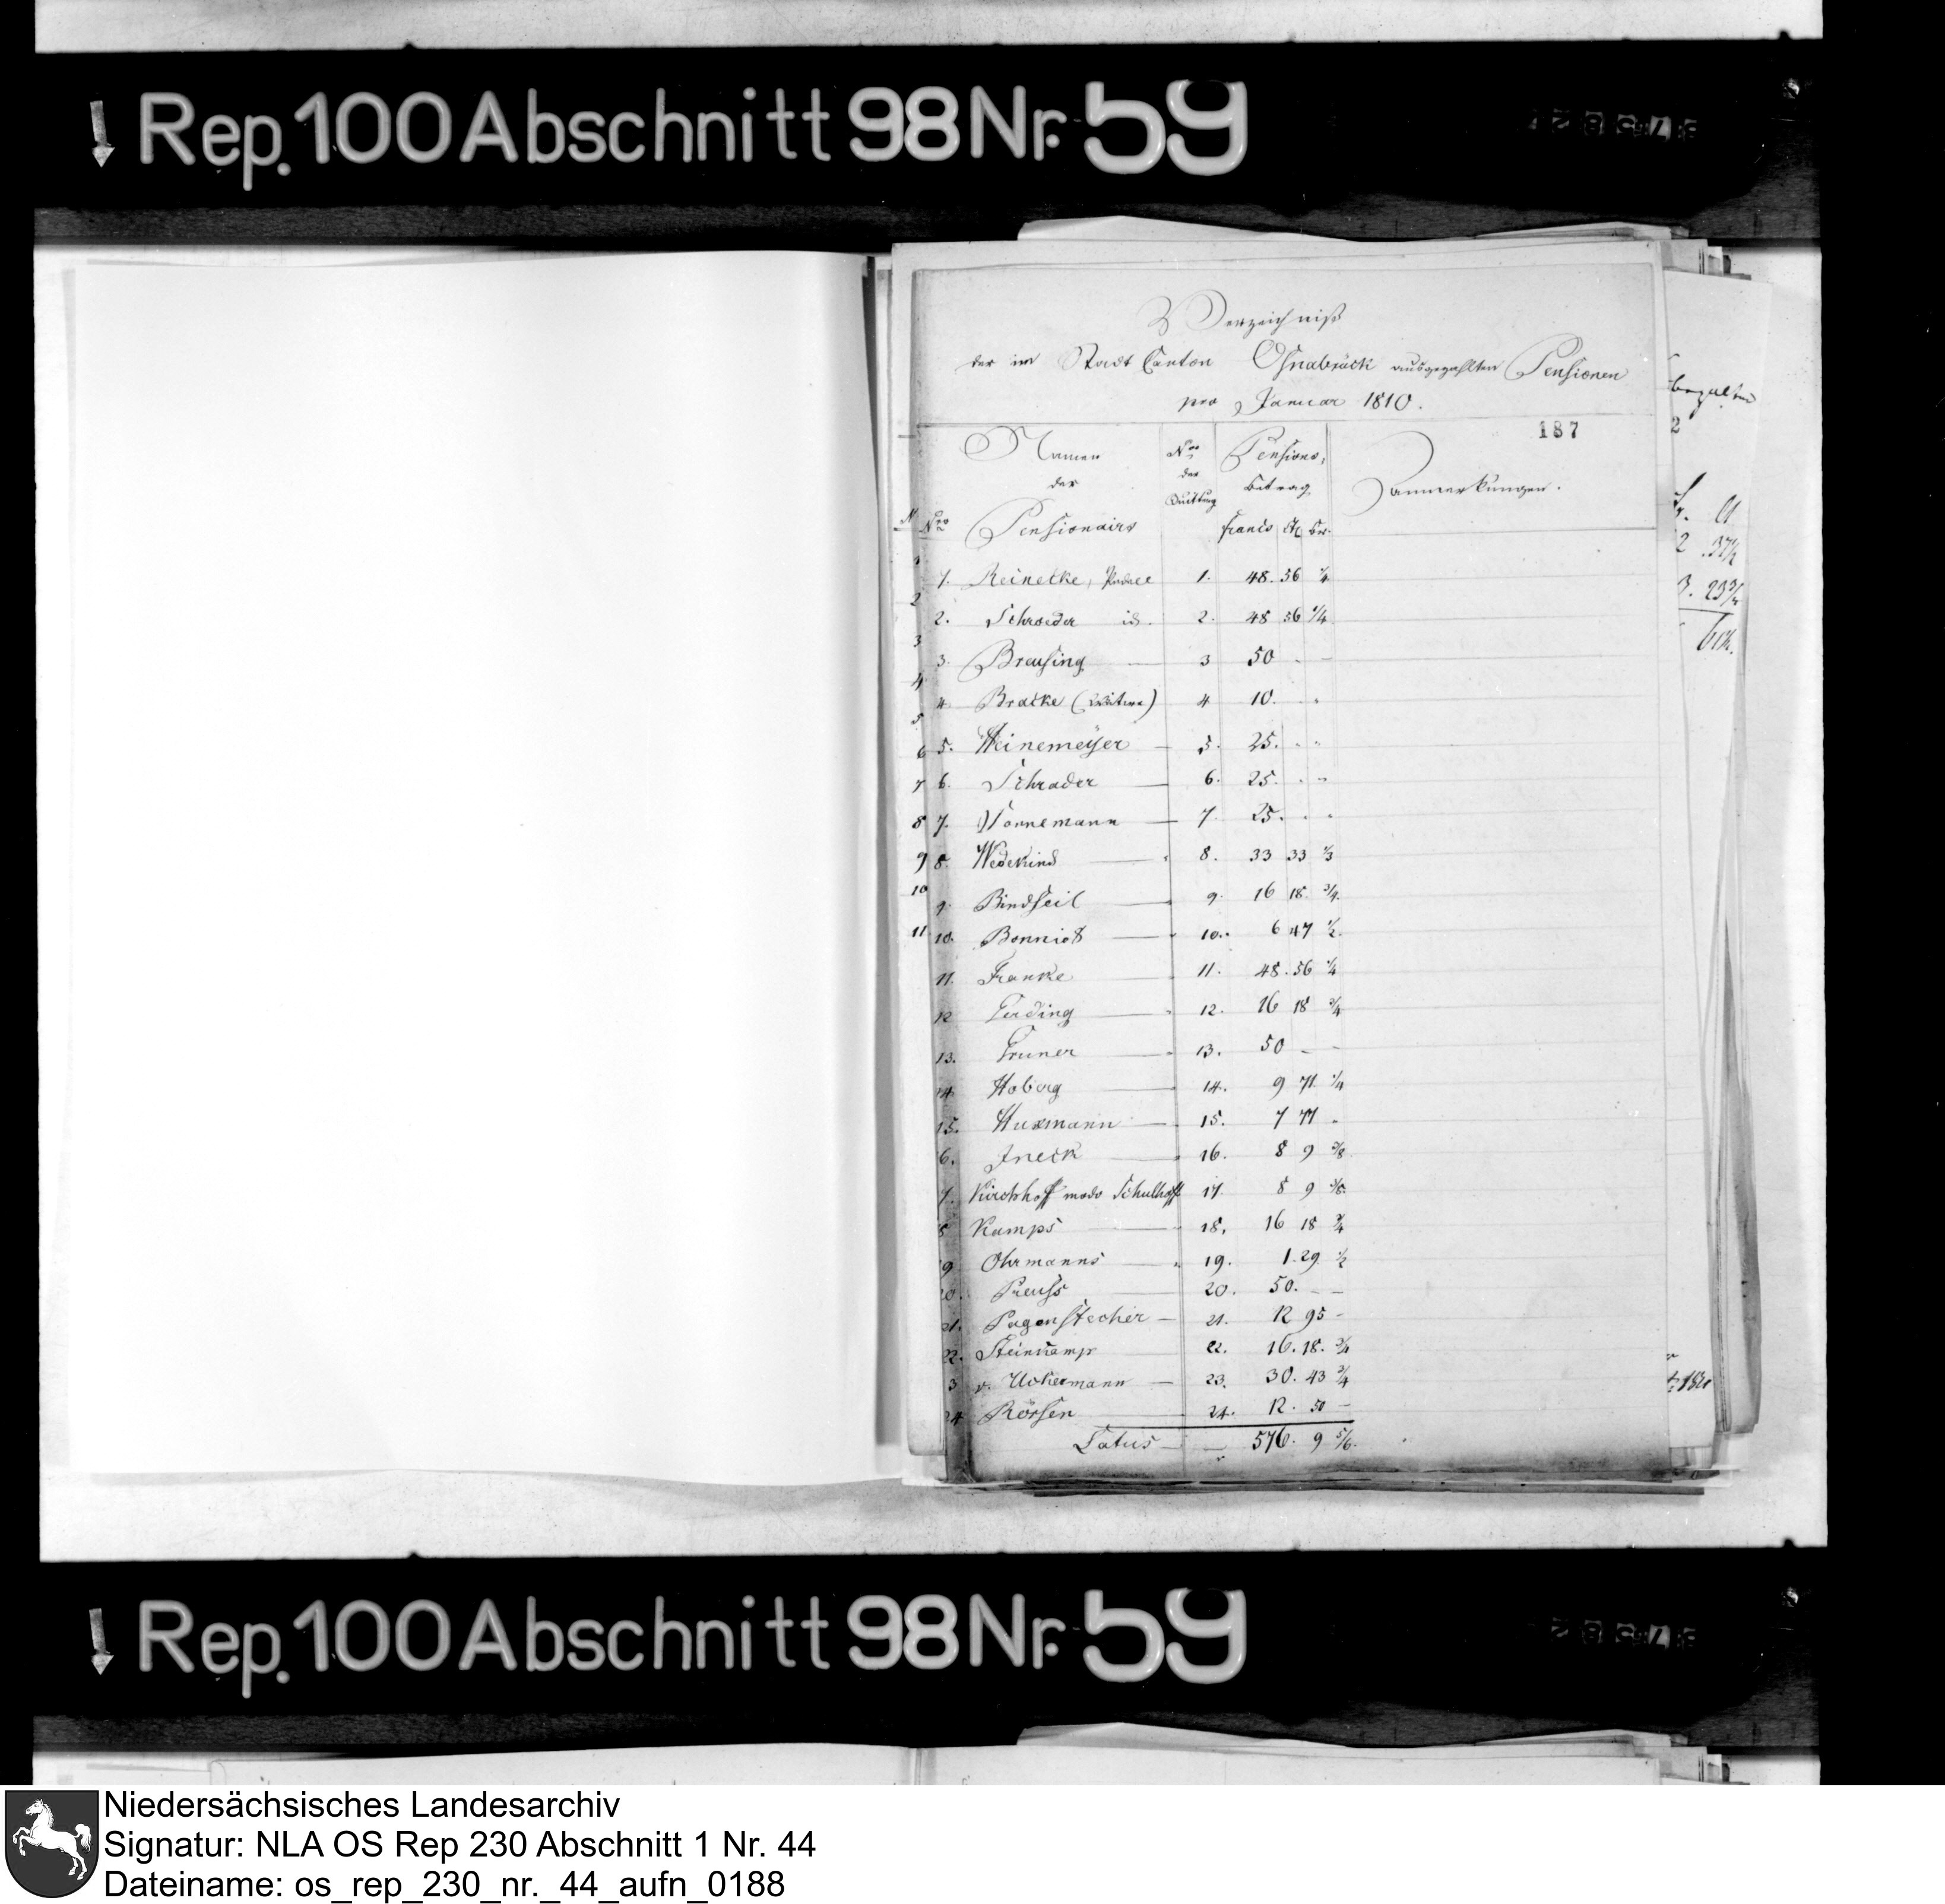 Rep. 100 Abschnitt 98 Nr. 59
Verzeichniß
der im Stadt Canton Osnabrück ausgezahlten Pensionen
pro Januar 1810.
187
Namen der Pensionairs
Nro der Quittung
Pensions-Betrag
Anmerkungen.
Nro francs Ct. Br.
1. Reinecke, 1. 48. 56 1/4
2. Schroeder id. 2. 48 56 1/4
3. Breusing — 3 50 - -
4. Bracke (Wittwe) 4 10.
5. Heinemeÿer — 5. 25.
6. Schrader — 6. 25.
7. Vornemann — 7. 25.
8. Wedekind — 8. 33 33 1/3
9. Bindseil — 9. 16 18 3/4
10. Bonniot — 10. 6 47 1/2
11. Franke 11. 48. 56 1/4
12 Gerding — 12. 16 18 3/4
13. Gruner — 13. 50 - -
14. Hoberg — 14. 9 71 1/4
15. Huxmann — 15. 7 77 -
16. Ineck — 16. 8 9 3/8
17. Kirchhoff modo Schulhoff 17. 8 9 3/8
18 Kamps — 18. 16 18 3/4
19 Ohrmanns — 19. 1. 29 1/2
20. Preuss 20. 50. - -
21. Pagenstecher — 21. 12 95 -
22. Steinkamp 22. 16. 18. 3/4
23 v. Uckermann — 23. 30. 43 3/4
24 Börsen — 24. 12. 50 -
Latus — 576. 9 5/6.
Rep. 100 Abschnitt 98 Nr. 59
Niedersächsisches Landesarchiv
Signatur: NLA OS Rep 230 Abschnitt 1 Nr. 44
Dateiname: os_rep_230_nr._44_aufn_0188